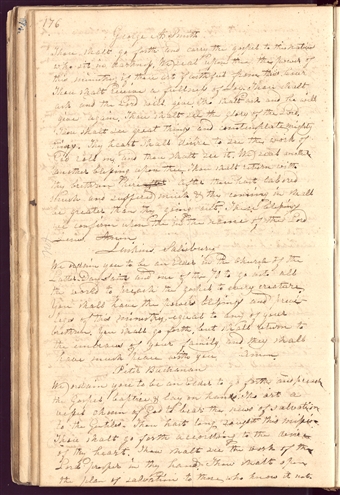 176
George A. Smith
Thou shalt go forth and carry the gospel to the nations
who sit in darkness. We seal upon thee the power of
this ministry, thou art Patient from this hour
Thou shalt receive a fullness of joy. Thou shalt
ask and the Lord will give, Thou shalt ask and he will
give again, Thou shalt see the glory of the Lord,
Thou shalt see great things and contemplate mighty
things. Thy heart shall desire to see the work of
God roll on and thou shalt see it. We seal
another blessing upon thee, Thou shalt return with
thy brethren after thou hast labored
much and suffered much & thy coming in shall
be greater than thy going out, These blessings
we confirm upon thee in the name of the Lord
Jesus. Amen.
Lorenzo Salisbury
We ordain you to be an Elder in the Church of the
Latter Day Saints and one of the 70 to go into all
the world to preach the gospel to every creature,
You shall have the powers blessings and
of this ministry, equal to any of your
brethren. You shall go forth, but shall return to
the embraces of your family, and they shall
have much peace with you. Amen.
Peter Buchanan
We ordain you to be an Elder to go forth and preach
the Gospel baptize & lay on hands. Thou art a
vessel chosen of God to bear the news of salvation
to the Gentiles. Thou hast long sought this
Thou shalt go forth according to the desire
of thy heart. Thou shalt see the work of the
Lord prosper in thy hand, Thou shalt open
the plan of salvation to those who know it not.